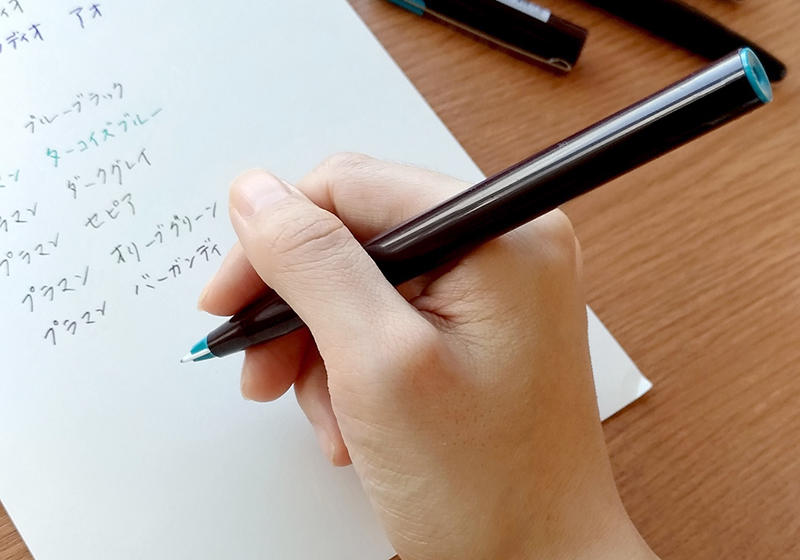 ィオ
ンディオ アオ
ブルーブラック
ン ターコイズブルー
ラマン ダークグレイ
プラマン セピア
プラマン オリーブグリーン
プラマン バーガンディ